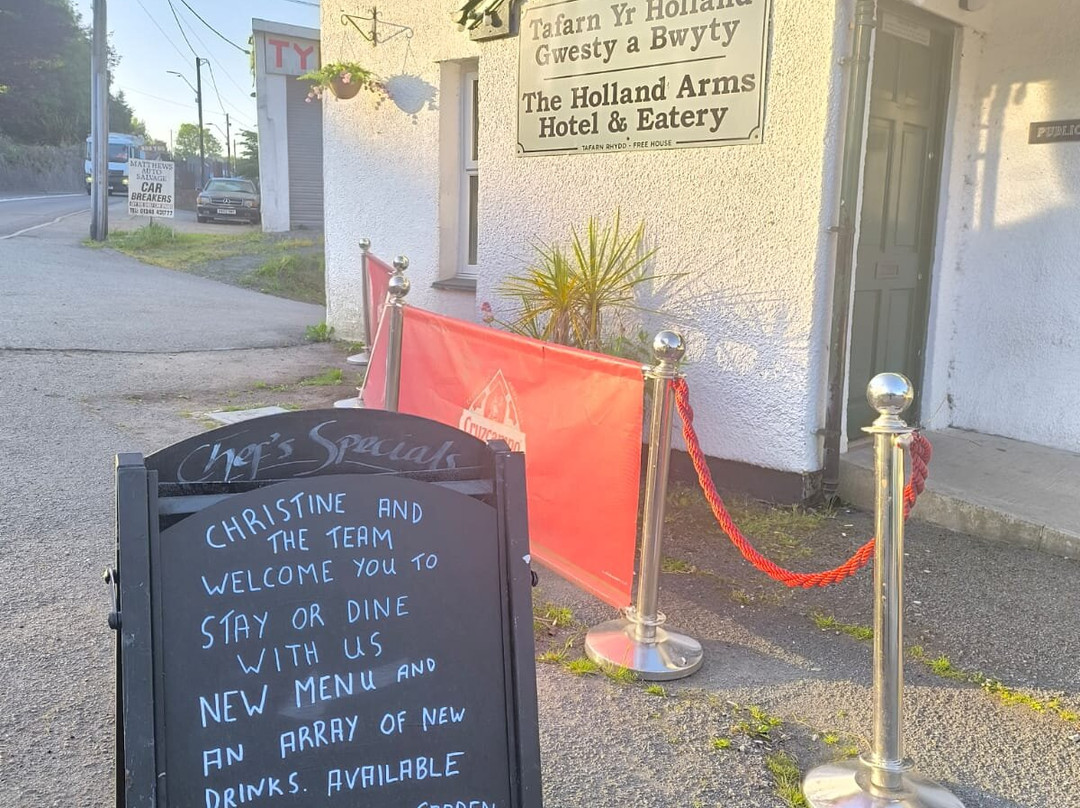 Tafarn Yr Holland
Gwesty a Bwyty
The Holland Arms
Hotel & Eatery
TAFARN RHYDD - FREE HOUSE
TY
MATTHEWS
AUTO
SALVAGE
CAR
BREAKERS
PUBLIC
Cruzcampo
Chef's Specials
CHRISTINE AND
THE TEAM
WELCOME YOU TO
STAY OR DINE
WITH US
NEW MENU AND
AN ARRAY OF NEW
DRINKS. AVAILABLE
GARDEN